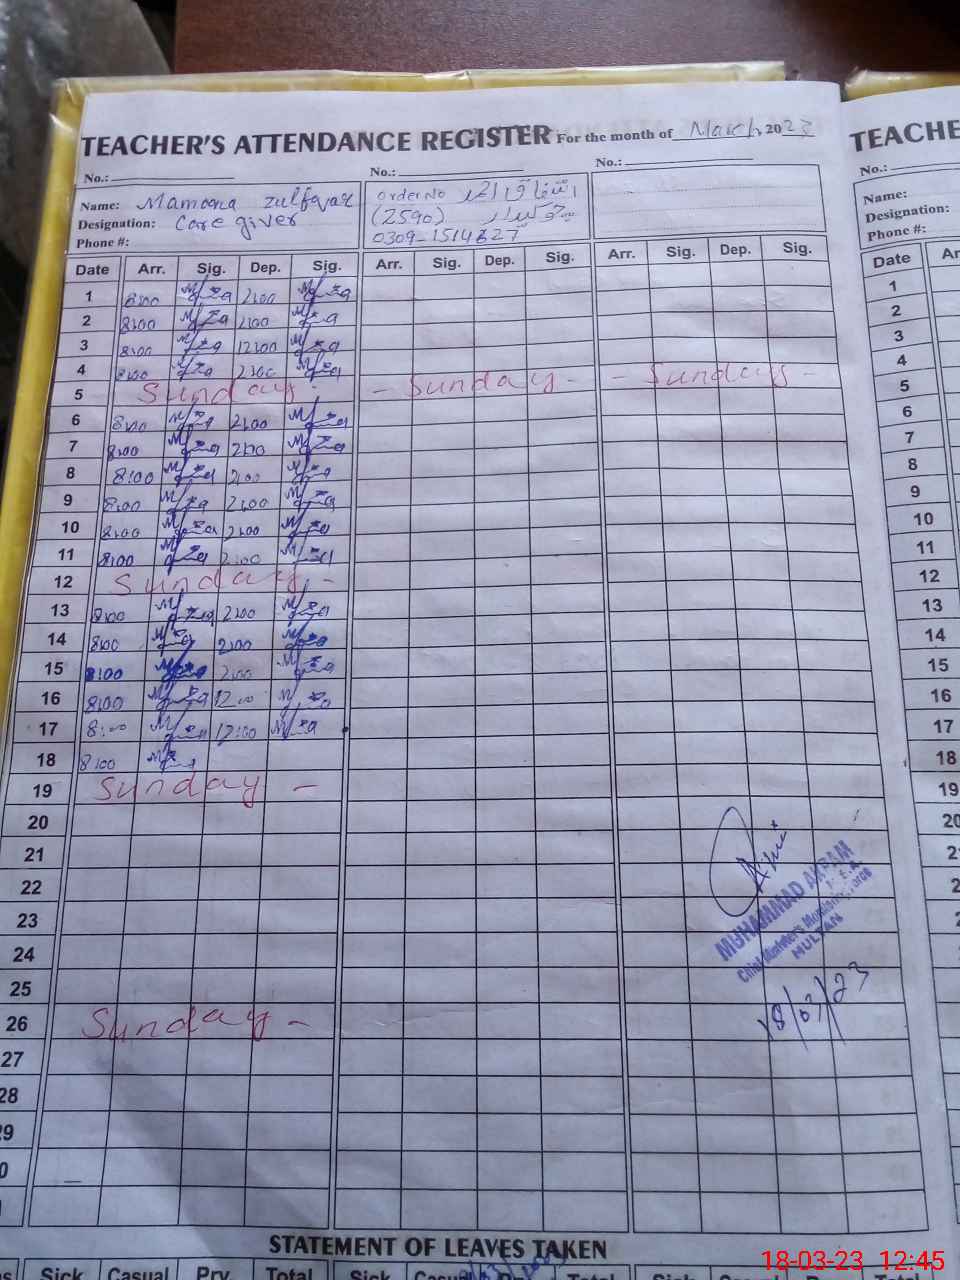 TEACHER'S ATTENDANCE REGISTER For the month of March, 2023
No.: No.: No.:
Name: Mamoona zulfqar
Designation: Care giver
Phone #:
order No اشفاق احمد
(2590) چوکیدار
Date Arr. Sig. Dep. Sig. Arr. Sig. Dep. Sig. Arr. Sig. Dep. Sig.
1 8:00 2:00
2 8:00 2:00
3 8:00 12:00
4 8:00 2:00
5 Sunday - Sunday - - Sunday -
6 8:00 2:00
7 8:00 2:00
8 8:00 2:00
9 8:00 2:00
10 8:00 2:00
11 8:00 2:00
12 Sunday -
13 8:00 2:00
14 8:00 2:00
15 8:00 2:00
16 8:00 12:00
17 8:00 12:00
18 8:00
19 Sunday -
20
21
22
23
24
25
26 Sunday -
27
28
29
MUHAMMAD AKRAM
M.E.A.
Chief Minister's Monitoring Force
MULTAN
18/03/23
STATEMENT OF LEAVES TAKEN
Sick Casual Prv Total Sick Total
TEACHE
No.:
Name:
Designation:
Phone #:
Date
1
2
3
4
5
6
7
8
9
10
11
12
13
14
15
16
17
18
19
18-03-23 12:45